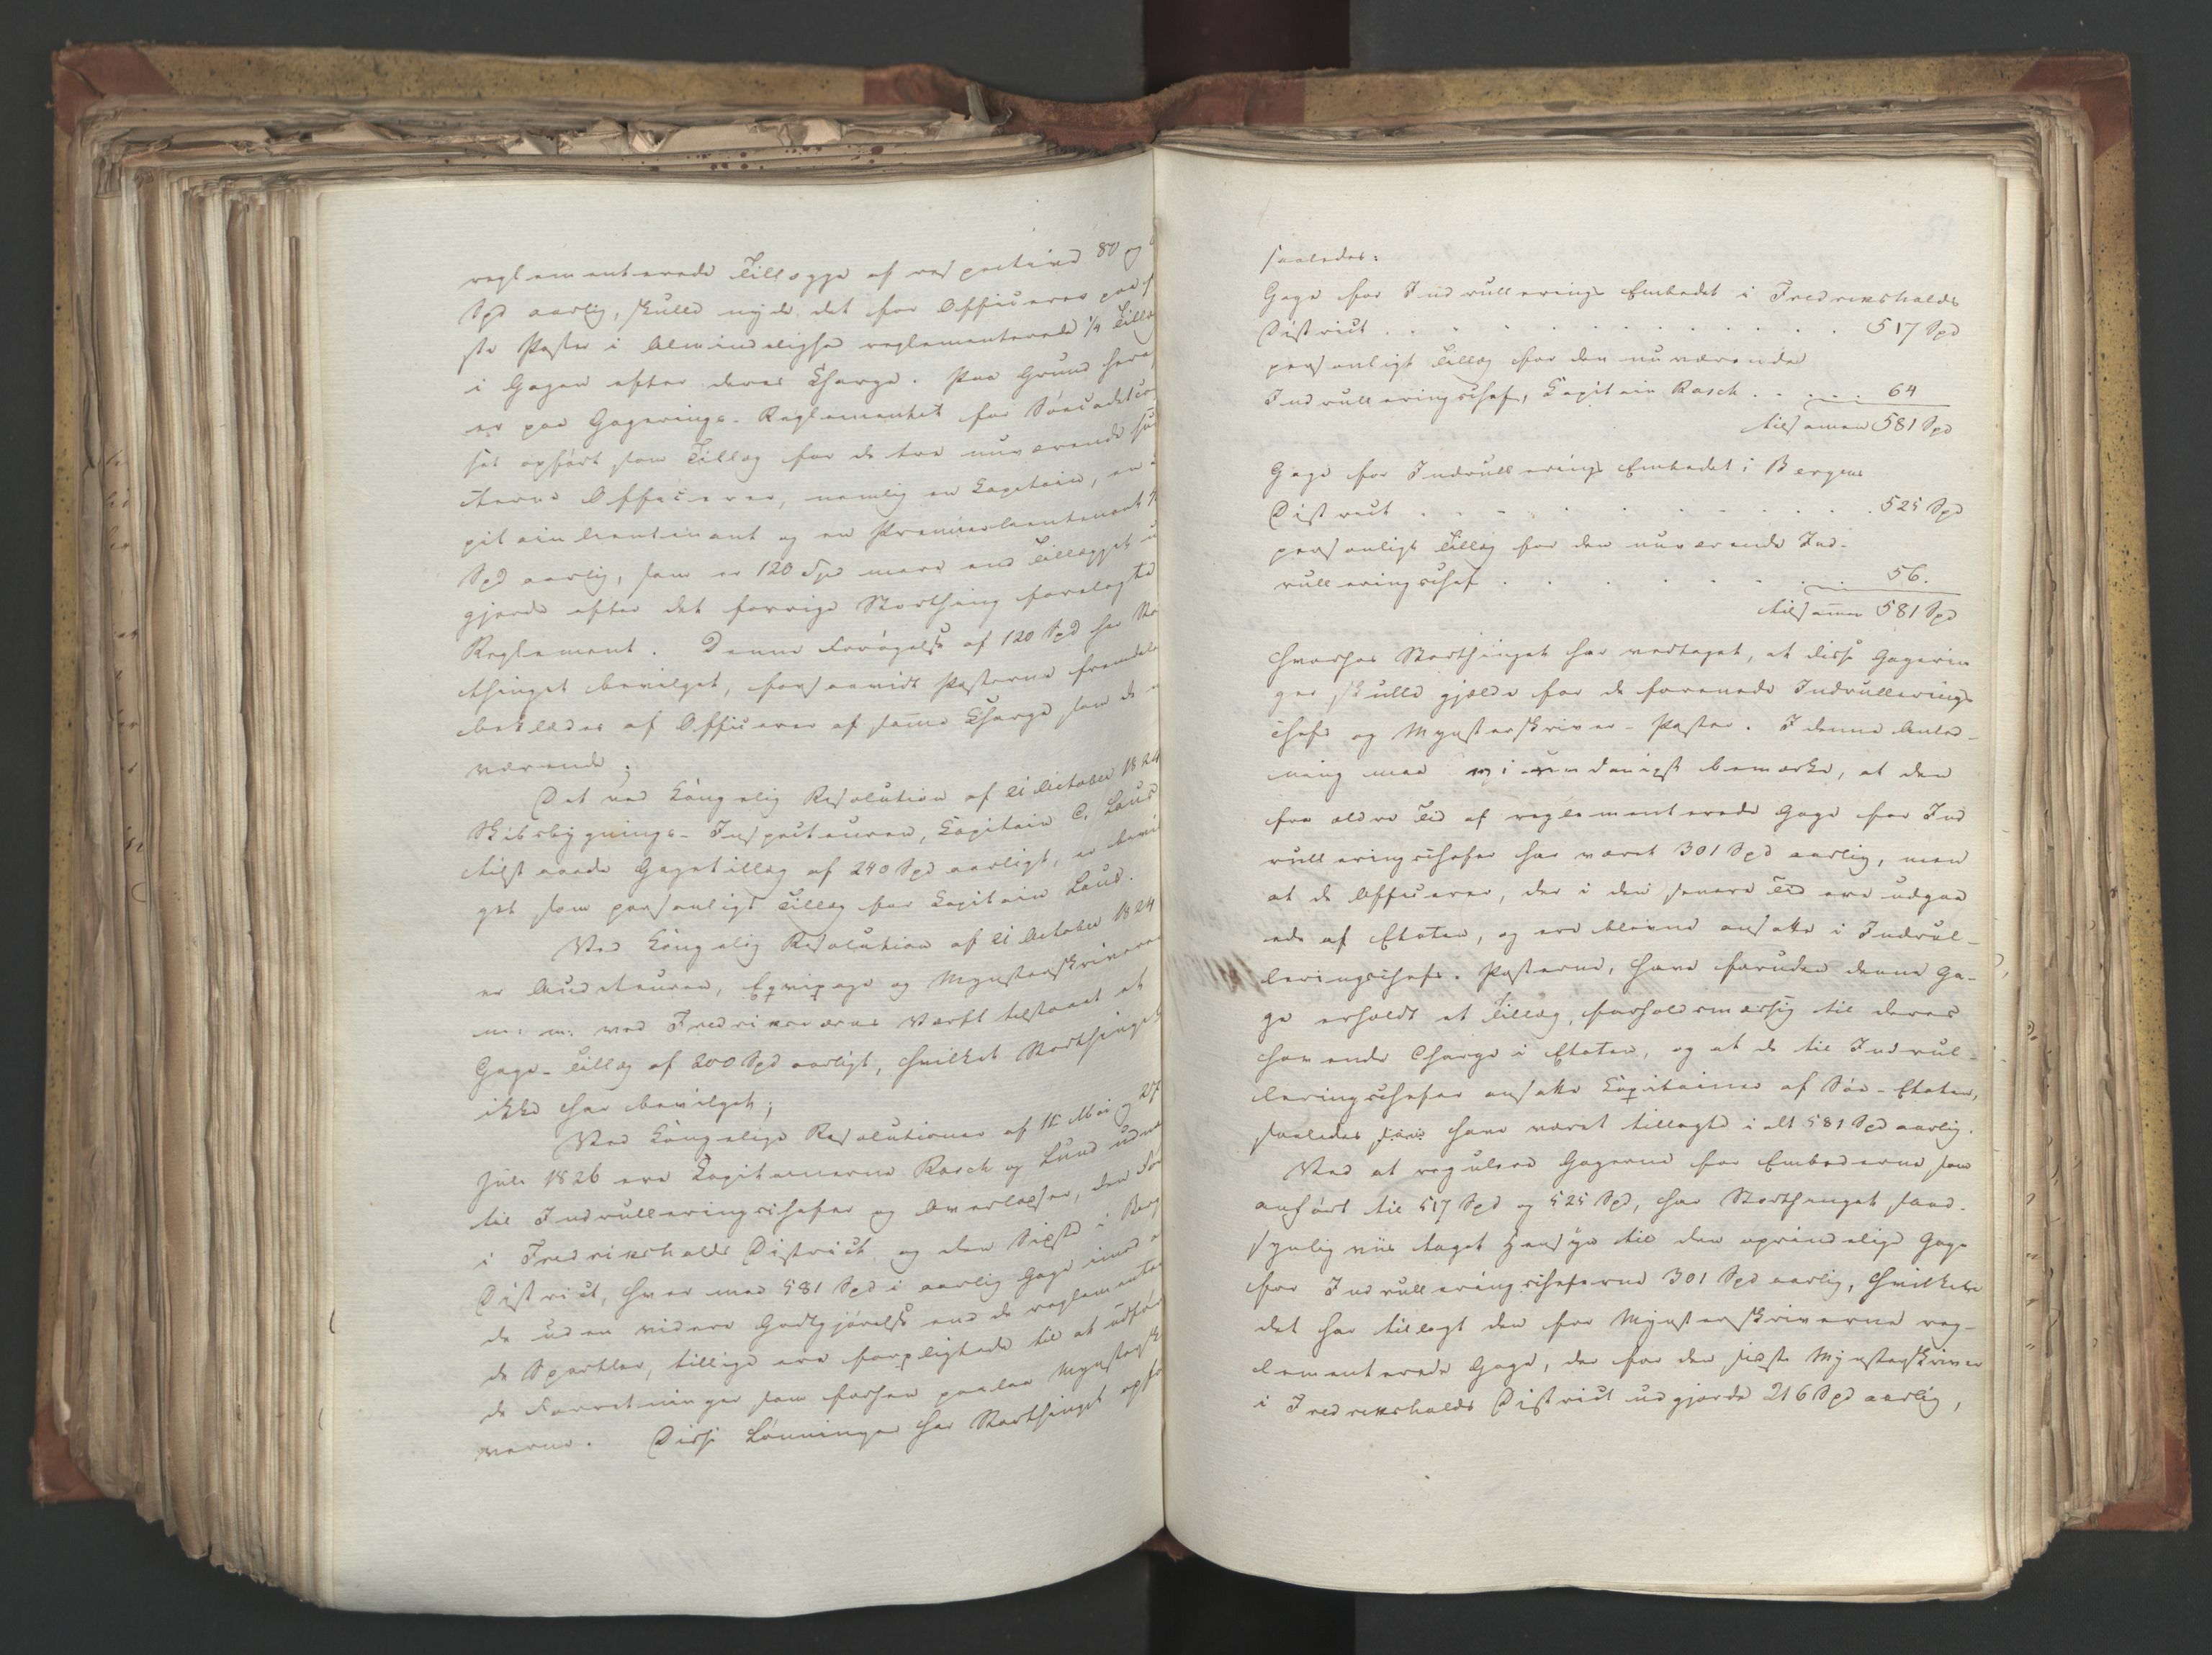 reglementerede Tillægge af respective 80 og
Spd aarlig, skulde nyde det for Officerer paa
ste Poster i Almindelighed reglementerede 1/4 Till
i Gagen efter deres Charge. Paa Grund her
er paa Gagerings-Reglementet for Søecadetco
set opført som Tillæg for de tre nuværende
Officerer, nemlig en Capitain, en
pitainlieutenant og en Premierlieutenant
Spd aarlig, som er 120 Spd mere end Tillægget
gjorde efter det forrige Storthing forelagte
Reglement. Denne Forøgelse af 120 Spd har Sto
thinget bevilget, forsaavidt Posterne fremdeles
beklædes af Officerer af samme Charge som de
værende;
Det ved Kongelig Resolution af 21 October 1824
Skibsbygnings-Inspecteuren, Capitain C. Lous
tilstaaede Gagetillæg af 240 Spd aarligt, er bevil
get som personligt Tillæg for Capitain Lous.
Ved Kongelig Resolution af 21 October 1824
er Auditeuren, Eqvipage og Mynsterskriveren
m: m: ved Fredriksværns Værft tilstaaet et
Gage-Tillæg af 200 Spd aarligt, hvilket Storthinget
ikke har bevilget;
Ved Kongelige Resolutioner af 15 Mai og 27
Juli 1826 ere Capitainerne Rasch og Lund udnæ
til Indrulleringschefer og Overlodser, den før
i Fredrikshalds District og den Sidste i Berg
District, hver med 581 Spd i aarlig Gage imod
de uden videre Godtgjørelse end de reglementer
de Sportler, tillige ere forpligtede til at udfør
de Forretninger som forhen paalaae Mynstersk
verne. Disse Lønninger har Storthinget opfø
saaledes:
Gage for Indrullerings Embedet i Fredrikshalds
District . . . . . . . . . . . . 517 Spd
personligt Tillæg for den nuværende
Indrulleringschef, Capitain Rasch . . . . . 64
tilsamen 581 Spd
Gage for Indrullerings Embedet i Bergens
District . . . . . . . . . . . 525 Spd
personligt Tillæg for den nuværende Ind-
rulleringschef . . . . . . . . 56.
tilsammen 581 Spd
hvorhos Storthinget har vedtaget, at disse Gagerin
ger skulle gjælde for de forenede Indrullerings
chefs og Mynsterskriver-Poster. I denne Anled-
ning maa vi underdanigst bemærke, at den
fra ældre Tid af reglementerede Gage for Ind
rulleringschefer har været 301 Spd aarlig, men
at de Officerer, der i den senere Tid ere udgaa
ede af Etaten, og ere blevne ansatte i Indrul-
leringschefs-Posterne, have foruden denne Ga-
ge erholdt et Tillæg, forholdsmæssig til deres
havende Charge i Etaten, og at de til Indrul-
leringschefer ansatte Capitainer af Søe-Etaten,
saaledes have været tillagte i alt 581 Spd aarlig.
Ved at regulere Gagerne for Embederne som
anført til 517 Spd og 525 Spd, har Storthinget sand-
synligviis taget Hensyn til den oprindelige Gage
for Indrulleringscheferne 301 Spd aarlig, hvilken
det har tillagt den for Mynsterskriverne reg-
lementerede Gage, der for den sidste Mynsterskriver
i Fredrikshalds District udgjorde 216 Spd aarlig,